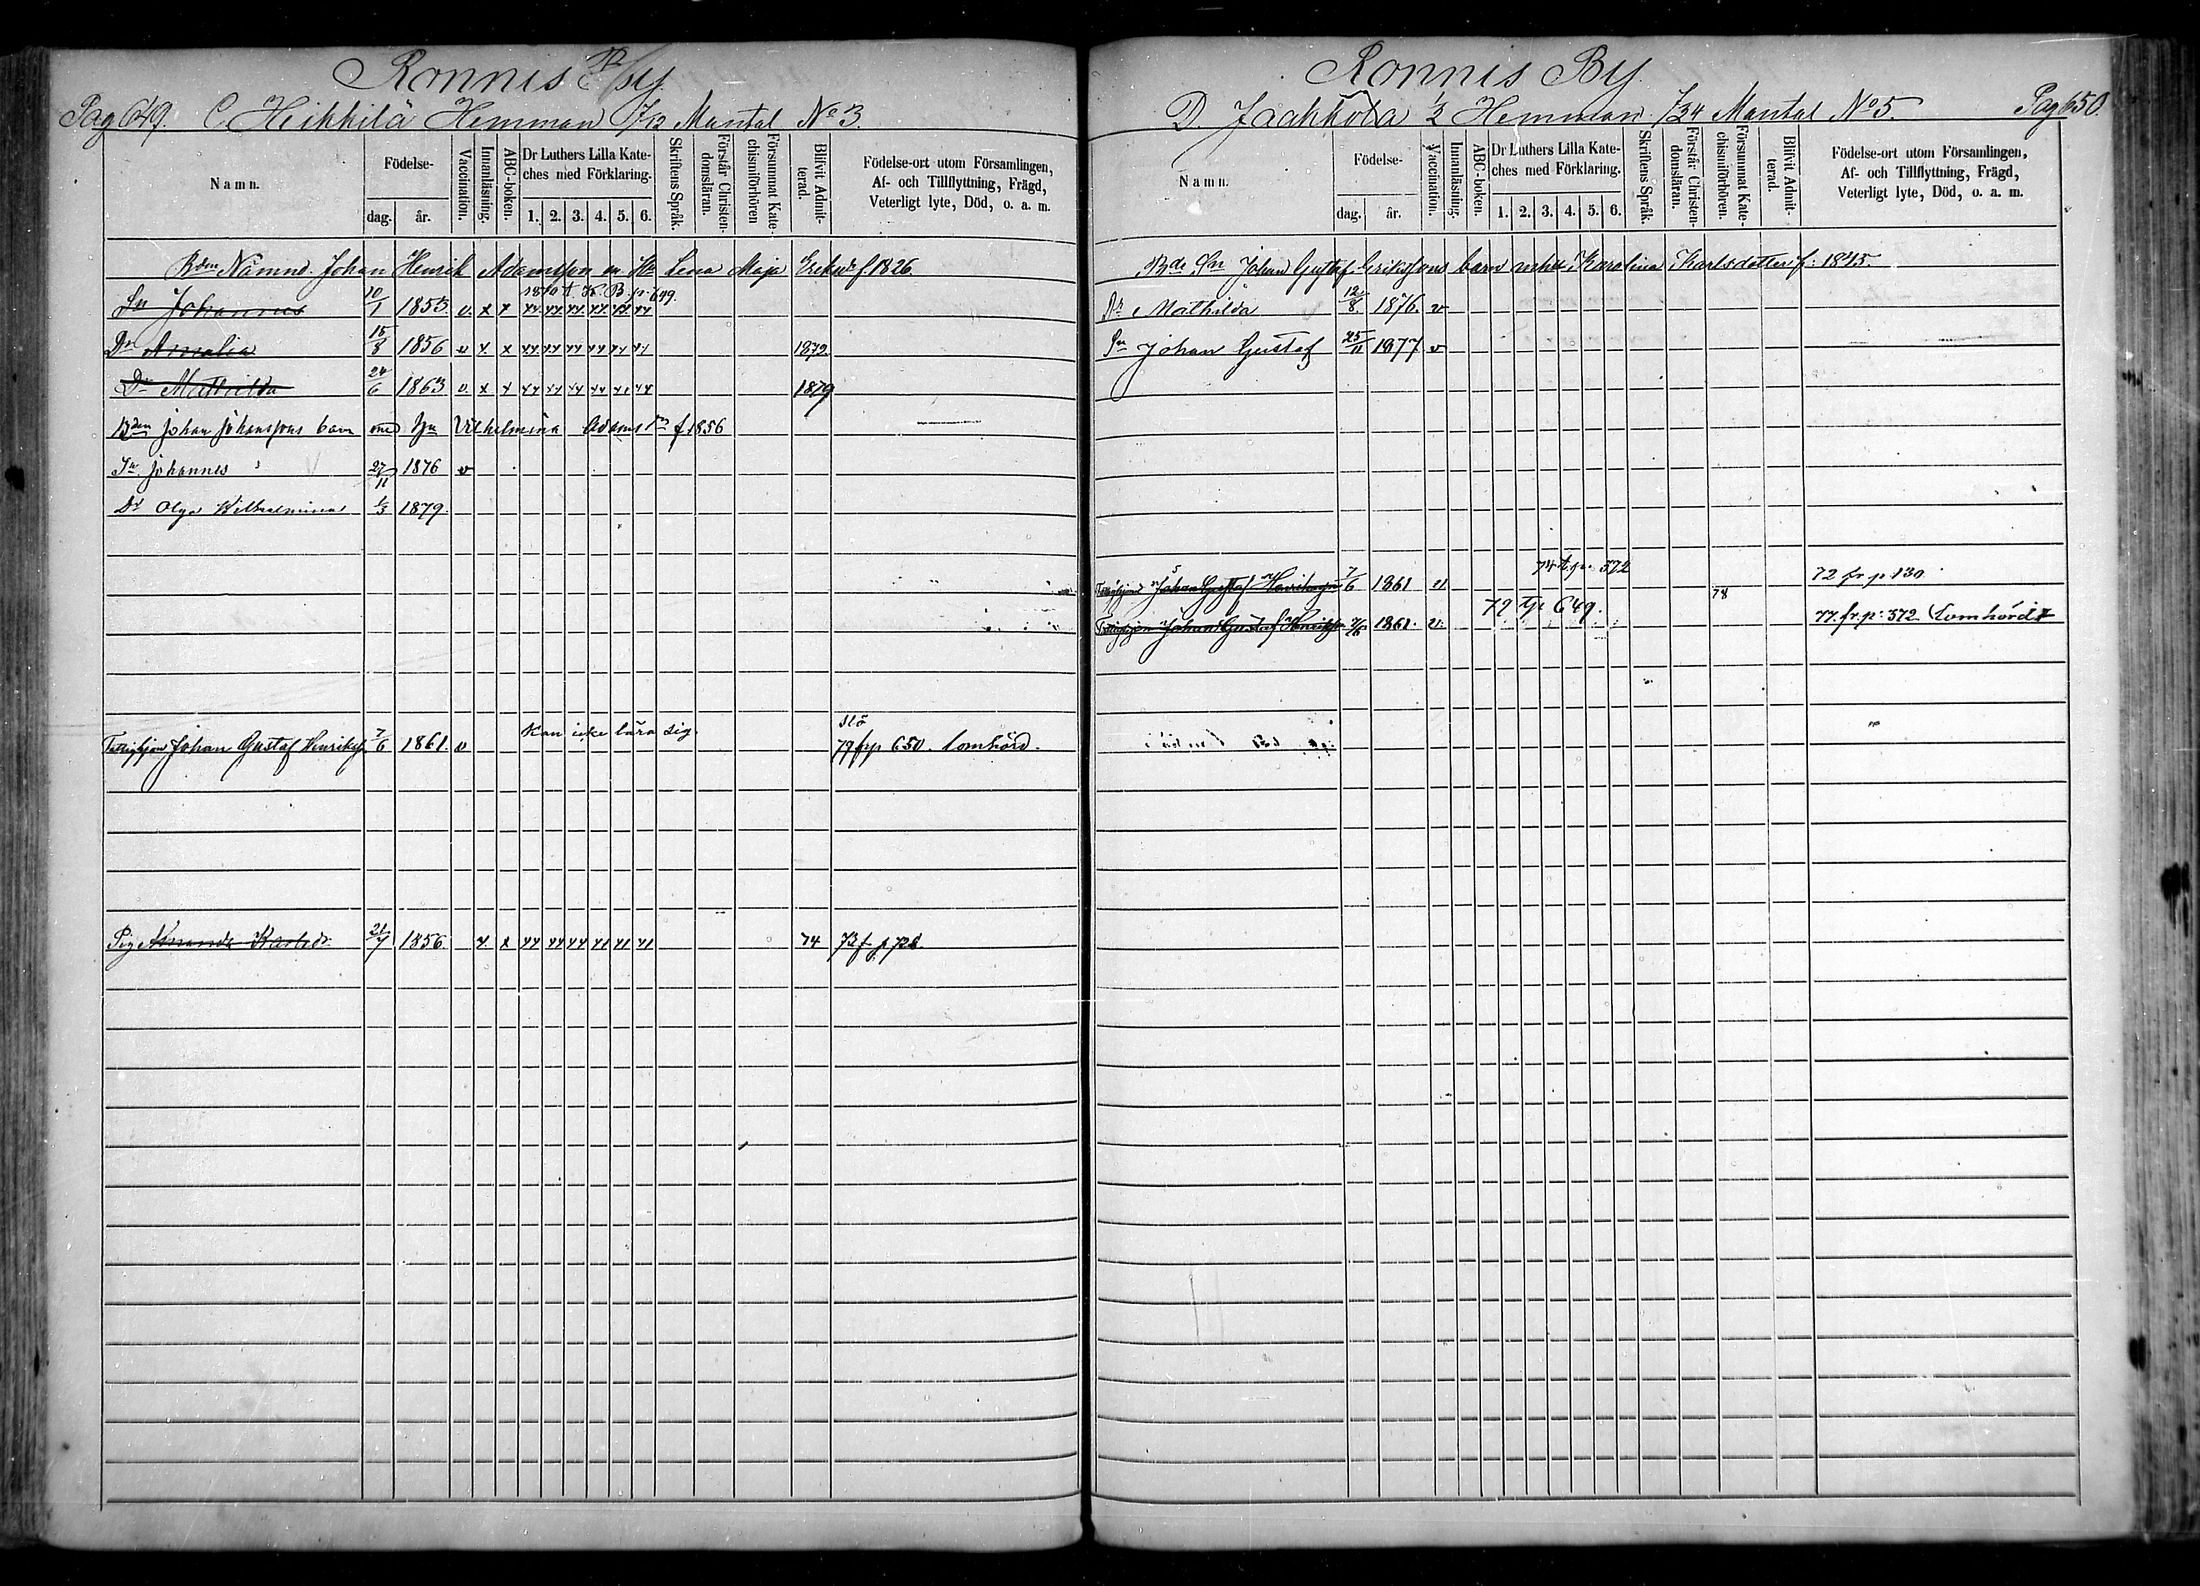 Ronnis By
Pag 649. C. Heikkilä Hemman 7/12 Mantal No 3.
Namn.
Födelse-
dag. år.
Vaccination.
Innanläsning.
ABC-boken.
Dr Luthers Lilla Kate-
ches med Förklaring.
1. 2. 3. 4. 5. 6.
Skriftens Språk.
Förstår Christen-
domsläran.
Försummat Kate-
chismiförhören
Blifvit Admit-
terad.
Födelse-ort utom Församlingen,
Af- och Tillflyttning, Frägd,
Veterligt lyte, Död, o. a. m.
Bdm Nämnd. Johan Henrik Adamsson m Hu Lena Maja Eriksdr f 1826
1879 t K. B. p. 649.
Sn Johannes 10/1 1853. v. x x xx xx xx xx xx xx
Dr Amalia 15/8 1856 v x x xx xx xx xx xx xx 1872
Dr Mathilda 24/6 1863 v. x x xx xx xx xx xx xx 1879
Bden Johan Johanssons barn med Hu Vilhelmina Adams dr f 1856
Sn Johannes 27/11 1876 v
Dr Olga Wilhelmina 1/3 1879.
slö
Kan icke lära sig
Fattighjon Johan Gustaf Henriksn 7/6 1861. v 79 frp 650. lomhörd.
Piga Amanda Karlsdr. 21/7 1856 x x xx xx xx xx xx xx 74 73 f p 728
Ronnis By.
D. Jaakkola 1/2 Hemman 7/24 Mantal No 5. Pag 650.
Namn.
Födelse-
dag. år.
Vaccination.
Innanläsning.
ABC-boken.
Dr Luthers Lilla Kate-
ches med Förklaring.
1. 2. 3. 4. 5. 6.
Skriftens Språk.
Förstår Christen-
domsläran.
Försummat Kate-
chismiförhören.
Blifvit Admit-
terad.
Födelse-ort utom Församlingen,
Af- och Tillflyttning, Frägd,
Veterligt lyte, Död, o. a. m.
Bde Sn Johan Gustaf Erikssons barn m hu Karolina Karlsdotter f: 1845.
Dr Mathilda 12/8 1876. v
Sn Johan Gustaf 25/11 1877 v
74 t. p. 572
Fattighjon Johan Gustaf Henriksson 7/6 1861 v 72 fr p 130
78
79 t p 649.
Fattighjon Johan Gustaf Henriksson 7/6 1861. v. 77. fr. p: 572. Lomhörd